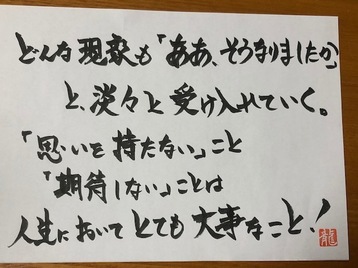 どんな現象も「ああ、そうなりましたか」
と、淡々と受け入れていく。
「思いを持たない」こと
「期待しない」ことは
人生においてとても大事なこと！
龍